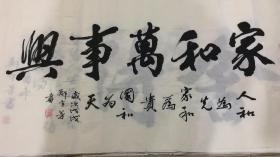 家和萬事興
人和為先
家和為貴
國和為天
歲次戊戌
書